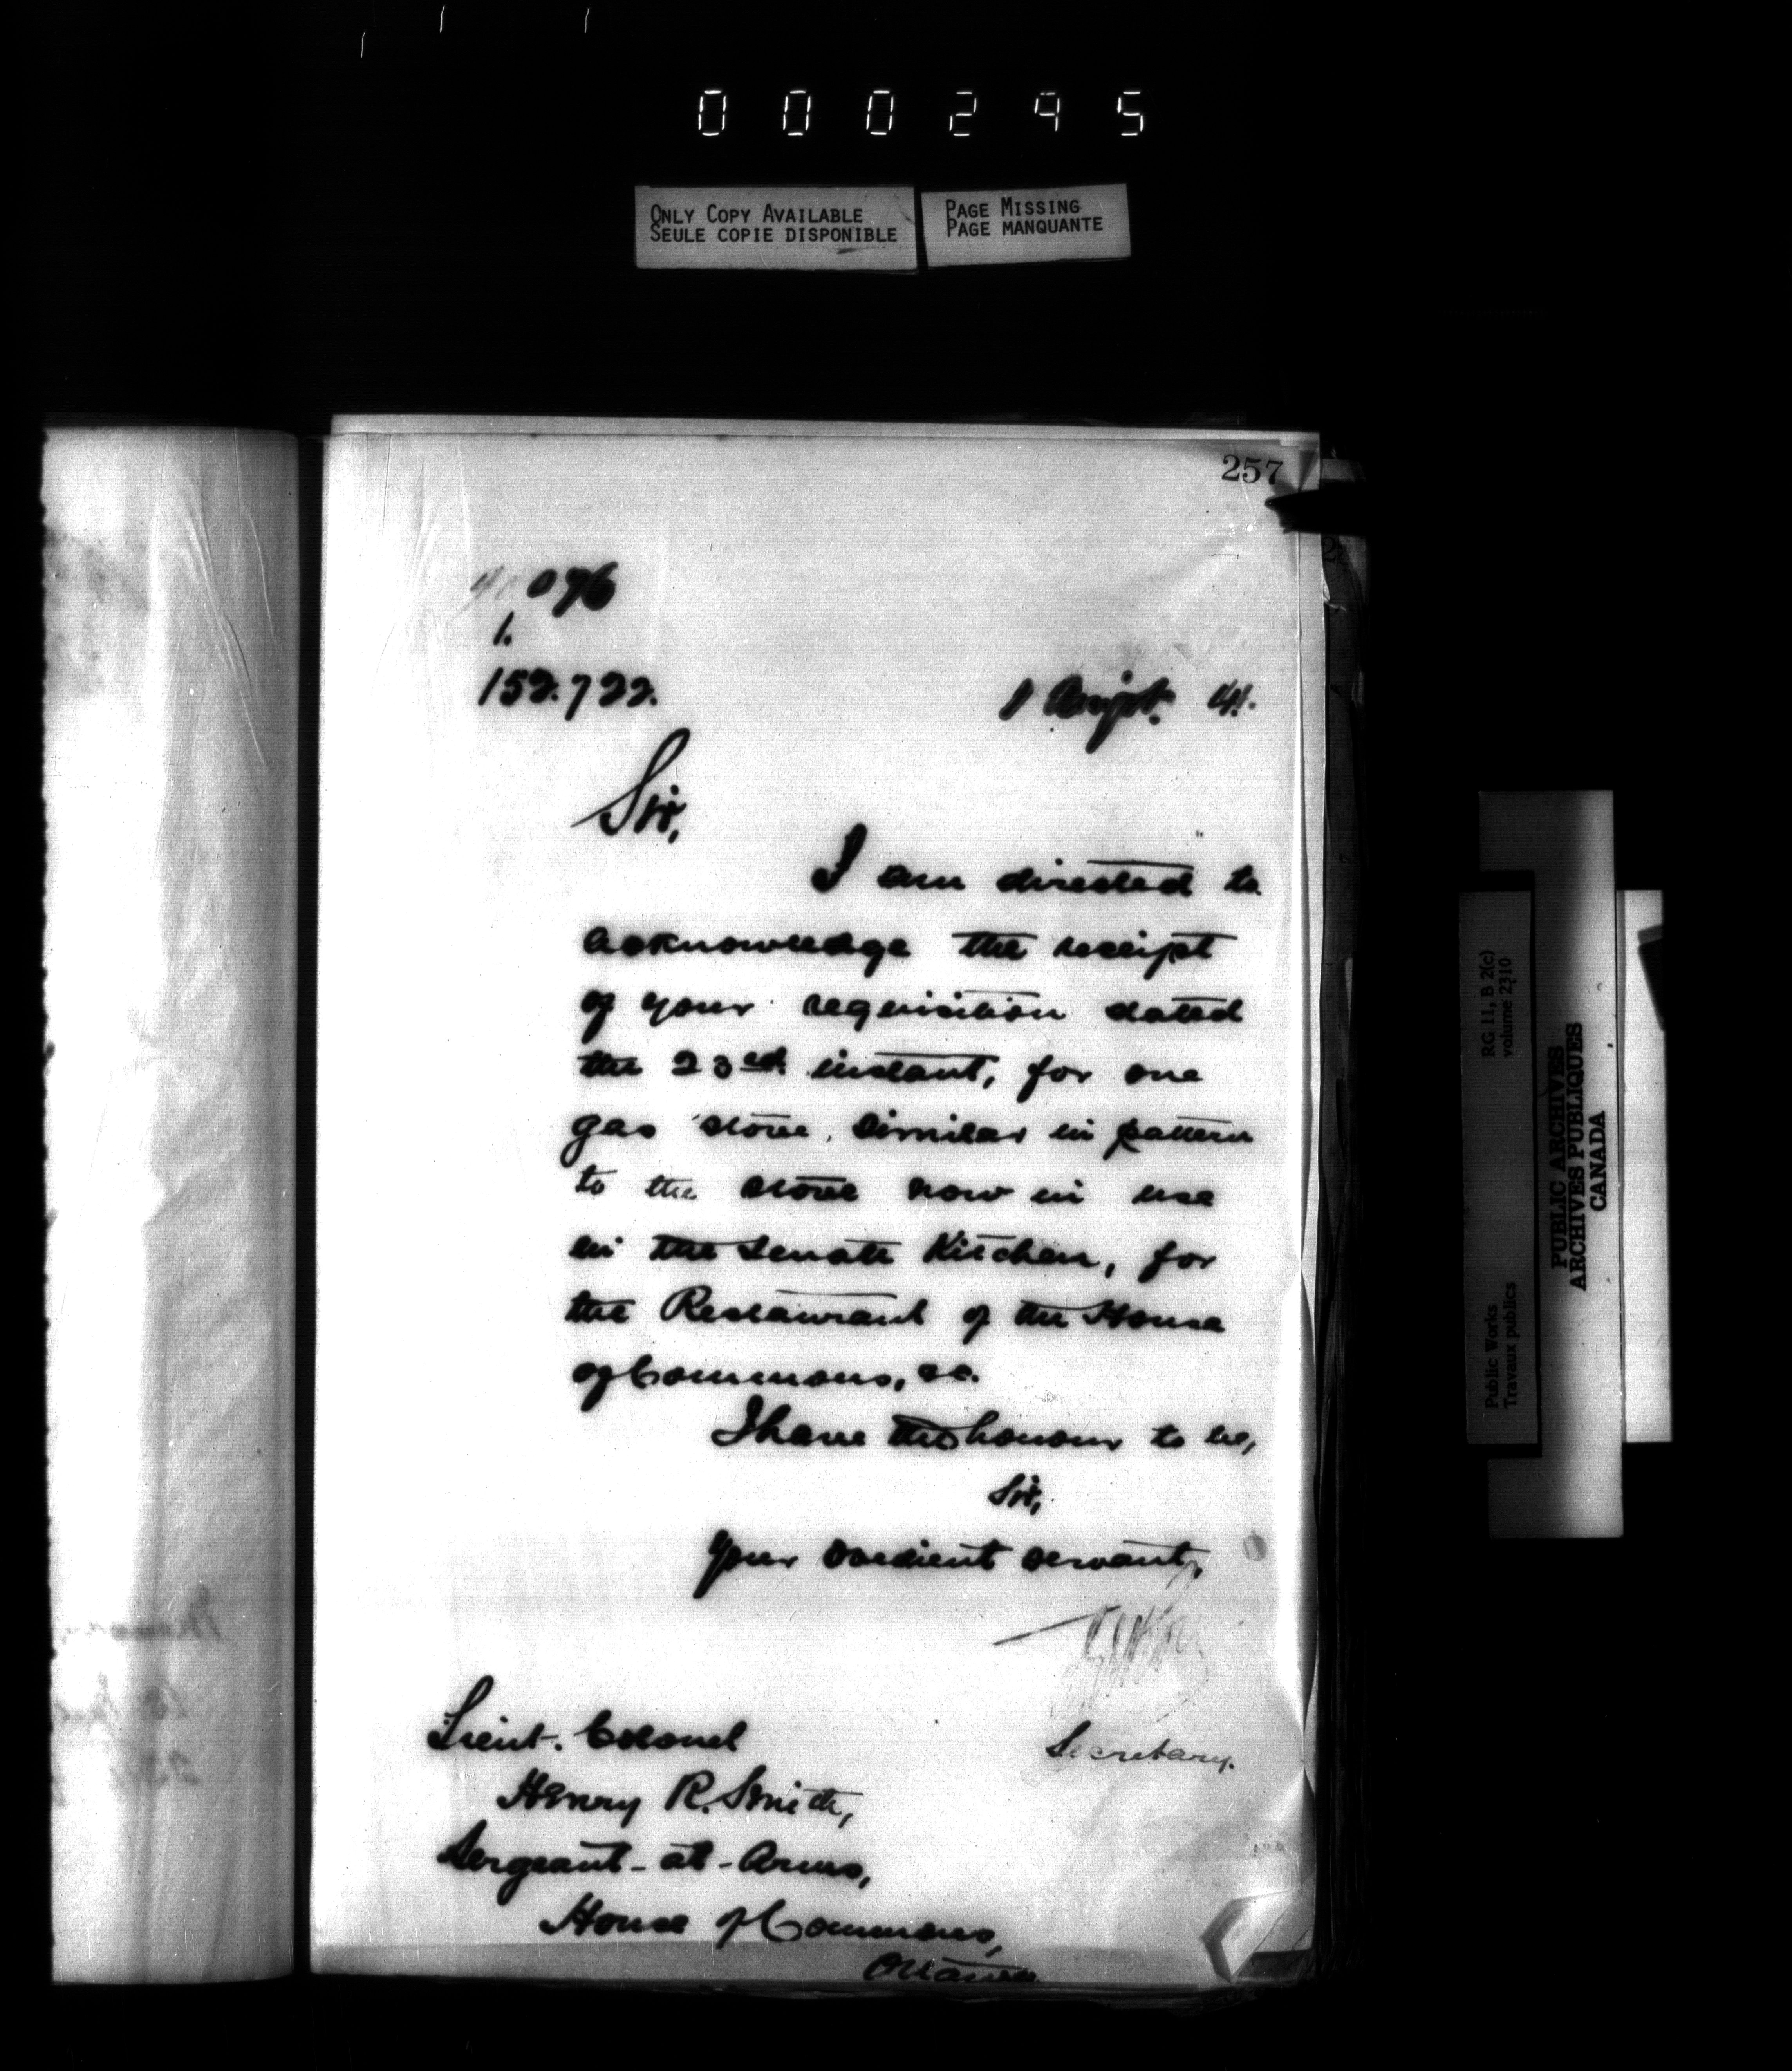 000295
ONLY COPY AVAILABLE
SEULE COPIE DISPONIBLE
PAGE MISSING
PAGE MANQUANTE
257
076
1.
152.722.
1
Sir,
I am directed to
acknowledge the receipt
of your requisition dated
the 23rd. instant, for one
gas stove, similar in pattern
to the stove now in use
in the Senate Kitchen, for
the Restaurant of the House
of Commons, &c.
I have the honour to be,
Sir,
Your obedient servant,
Secretary.
Lieut. Colonel
Henry R. Smith,
Sergeant-at-Arms,
House of Commons,
Ottawa
RG 11, B 2(c)
volume 2310
Public Works
Travaux publics
PUBLIC ARCHIVES
ARCHIVES PUBLIQUES
CANADA